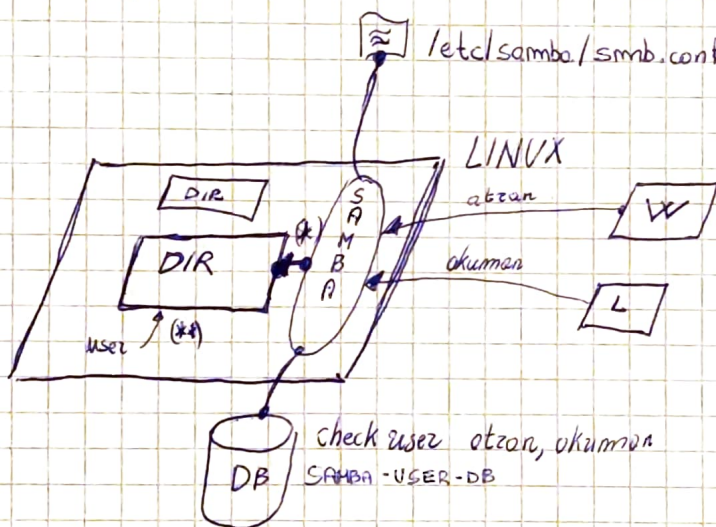 /etc/samba/smb.conf
LINUX
DIR
SAMBA
atran
W
(*)
DIR
okuman
L
user (**)
check user atran, okuman
DB SAMBA-USER-DB